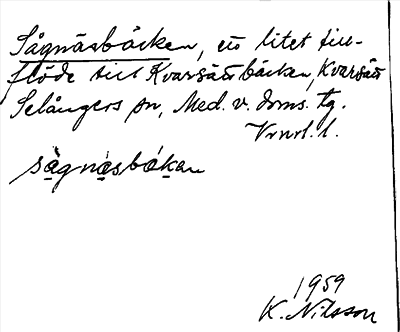 Sågnäsbäcken, ett litet till-
flöde till Kvarsättbäcken, Kvarsätt
Selångers sn, Med. v. doms. tg.
Vrnrl. l.
sågnäsbäkan
1959
K. Nilsson